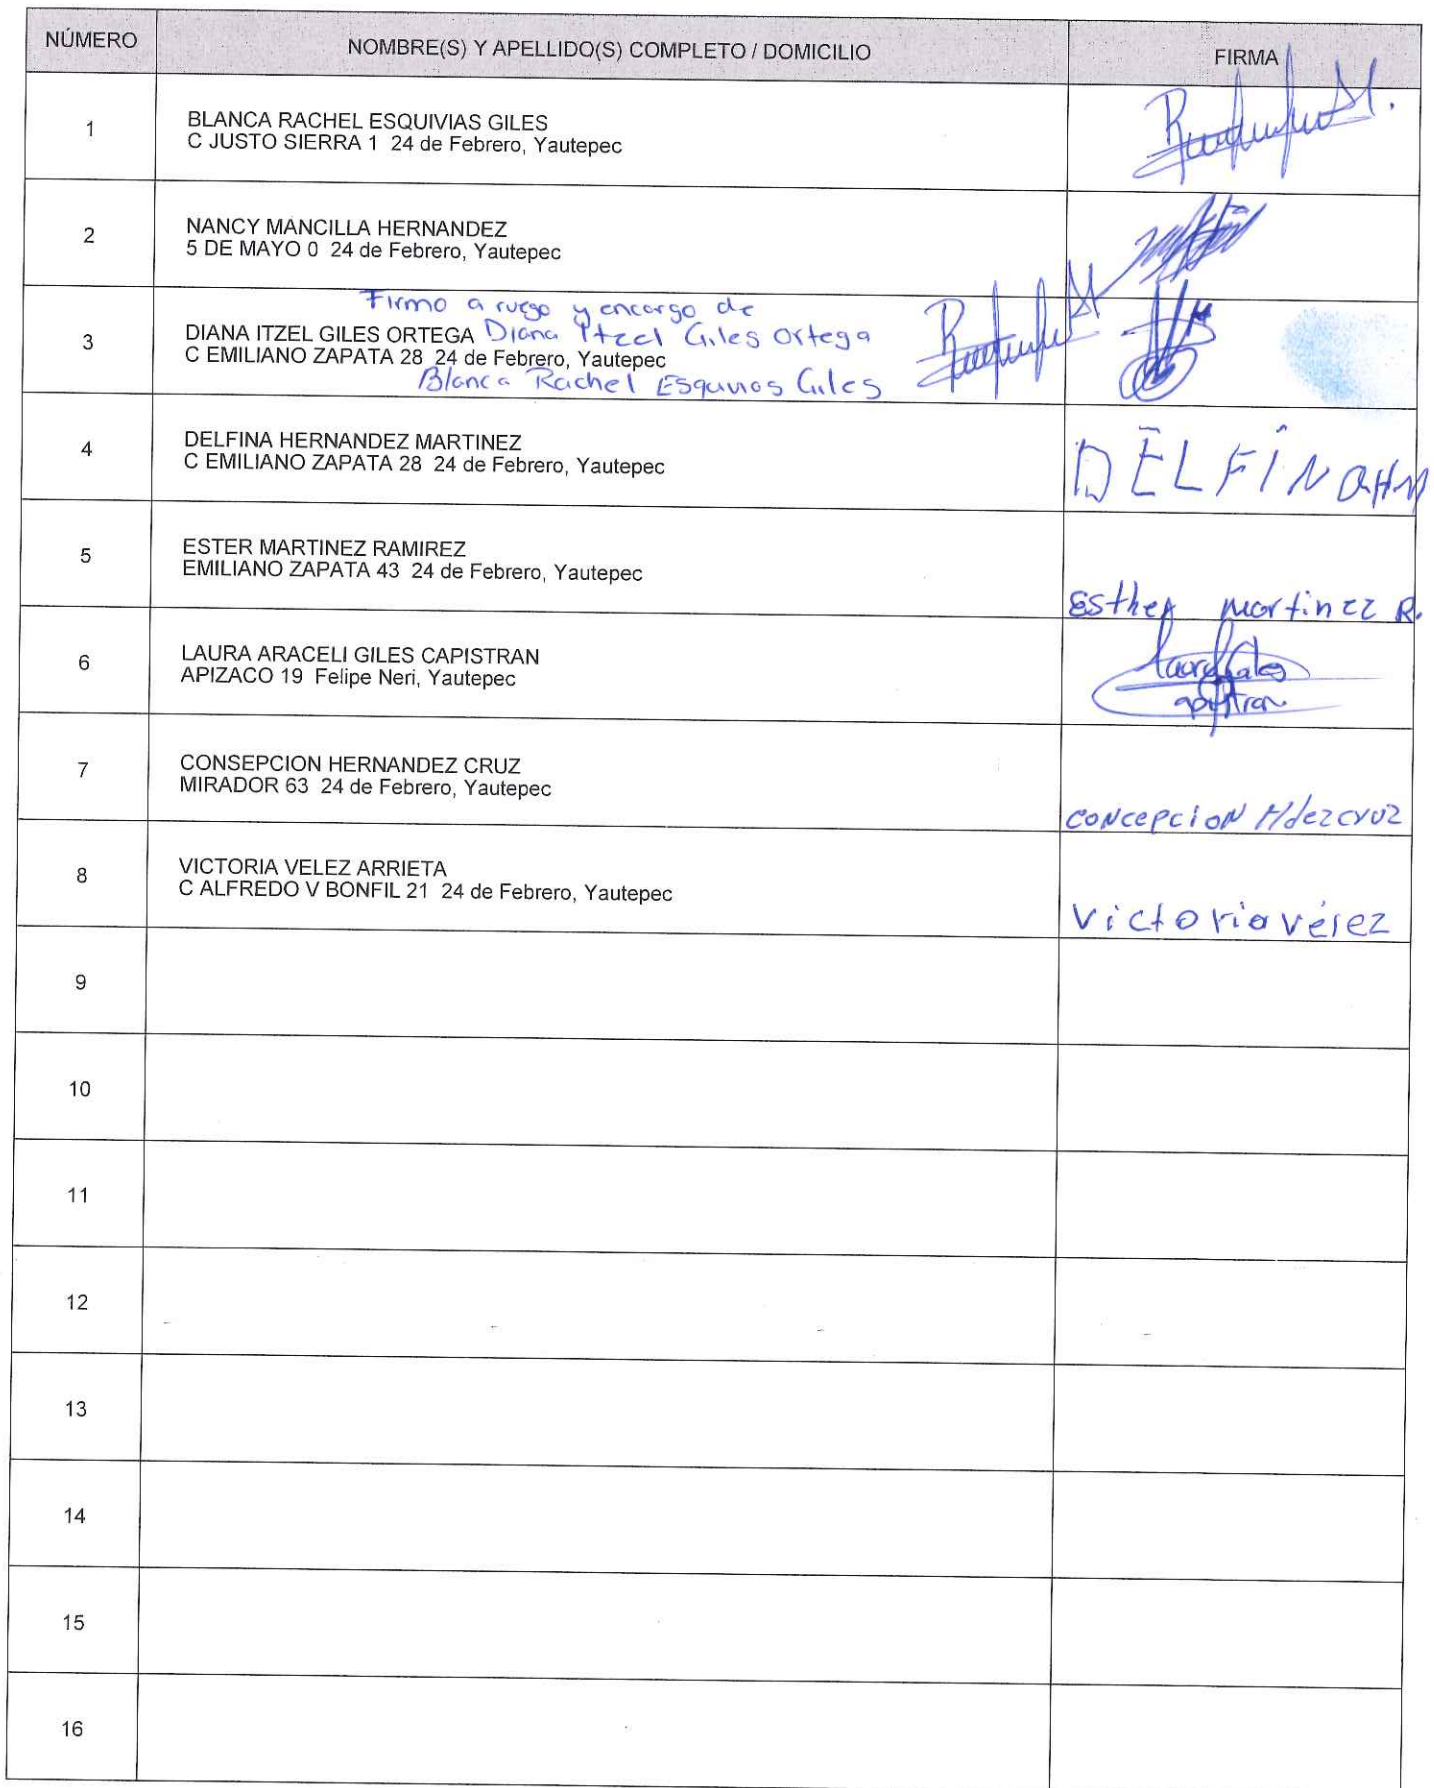 NÚMERO NOMBRE(S) Y APELLIDO(S) COMPLETO / DOMICILIO FIRMA
1 BLANCA RACHEL ESQUIVIAS GILES
C JUSTO SIERRA 1 24 de Febrero, Yautepec
2 NANCY MANCILLA HERNANDEZ
5 DE MAYO 0 24 de Febrero, Yautepec
Firmo a ruego y encargo de
3 DIANA ITZEL GILES ORTEGA Diana Itzel Giles Ortega
C EMILIANO ZAPATA 28 24 de Febrero, Yautepec
Blanca Rachel Esquivias Giles
4 DELFINA HERNANDEZ MARTINEZ
C EMILIANO ZAPATA 28 24 de Febrero, Yautepec
DELFINA HM
5 ESTER MARTINEZ RAMIREZ
EMILIANO ZAPATA 43 24 de Febrero, Yautepec
Esther Martinez R.
6 LAURA ARACELI GILES CAPISTRAN
APIZACO 19 Felipe Neri, Yautepec
7 CONSEPCION HERNANDEZ CRUZ
MIRADOR 63 24 de Febrero, Yautepec
CONCEPCION Hdez cruz
8 VICTORIA VELEZ ARRIETA
C ALFREDO V BONFIL 21 24 de Febrero, Yautepec
Victoria vélez
9
10
11
12
13
14
15
16